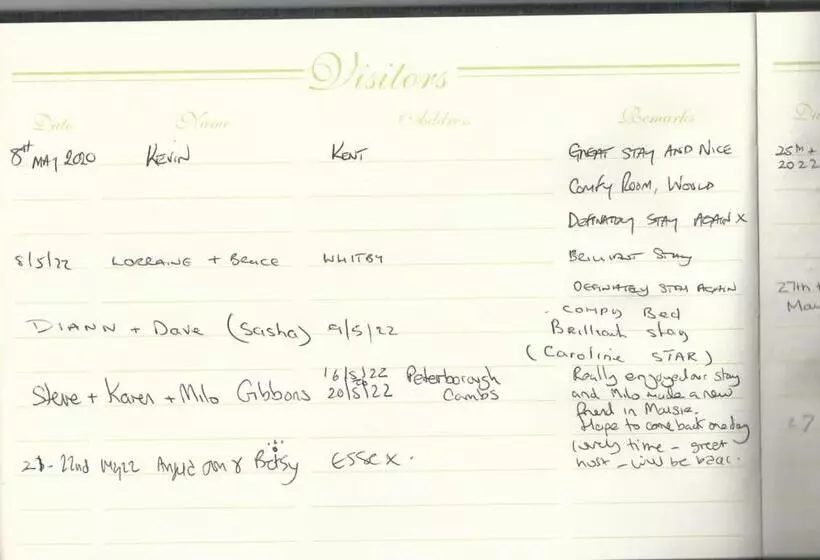 Visitors
Date Name Address Remarks
8st MAY 2020 KEVIN KENT GREAT STAY AND NICE
COMFY ROOM, WOULD
DEFINATELY STAY AGAIN X
8/5/22 LORRAINE + BRUCE WHITBY BRILLIANT STAY
DEFINATELY STAY AGAIN
COMFY BED
DIANN + Dave (Sasha) 9/5/22 Brilliant stay
(Caroline STAR)
Steve + Karen + Milo Gibbons 16/5/22 Peterborough Really enjoyed our stay
20/5/22 Cambs and Milo made a new
friend in Maisie.
Hope to come back one day
21-22nd May 22 Betsy ESSEX. lovely time - great
host - will be back.
25th +
2022
27th +
May
27